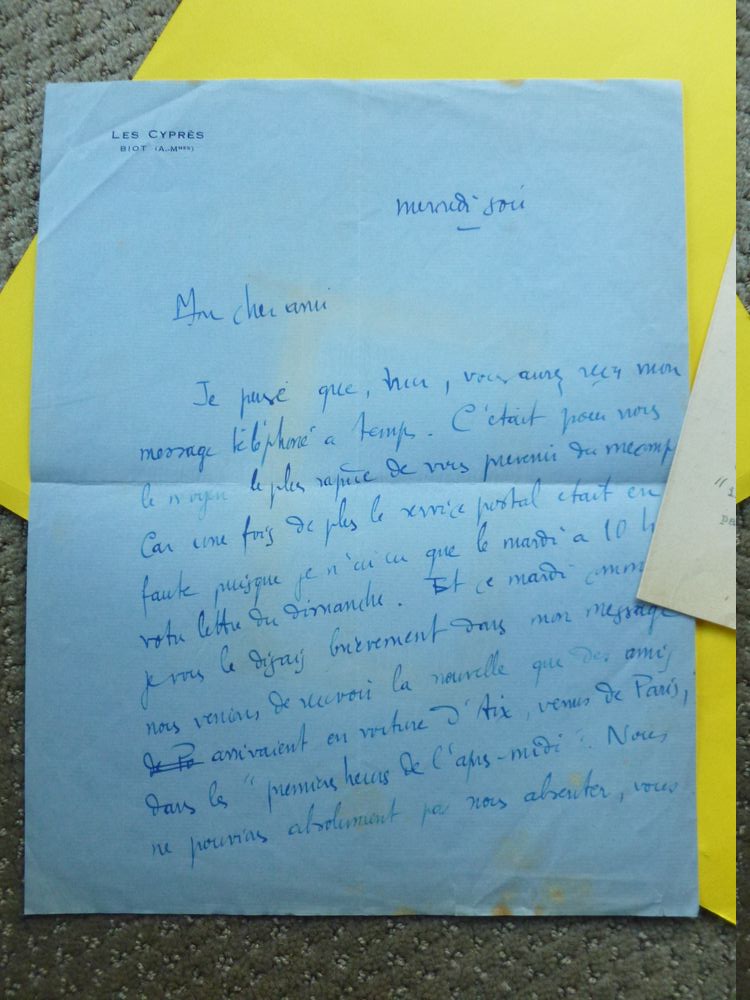 LES CYPRÈS
BIOT (A.-MMES)
mercredi soir
Mon cher ami
Je pense que, hier, vous aurez reçu mon
message téléphoné a temps. C'était pour nous
le moyen le plus rapide de vous prevenir du mecomp
Car une fois de plus le service postal etait en
faute puisque je n'ai eu que le mardi a 10 h
votre lettre du dimanche. Et ce mardi comm
je vous le disais brievement dans mon message
nous venions de recevoir la nouvelle que des amis
arrivaient en voiture d'Aix, venus de Paris,
dans les "premieres heures de l'apres-midi". Nous
ne pouvions absolument pas nous absenter, vous
"1
pa